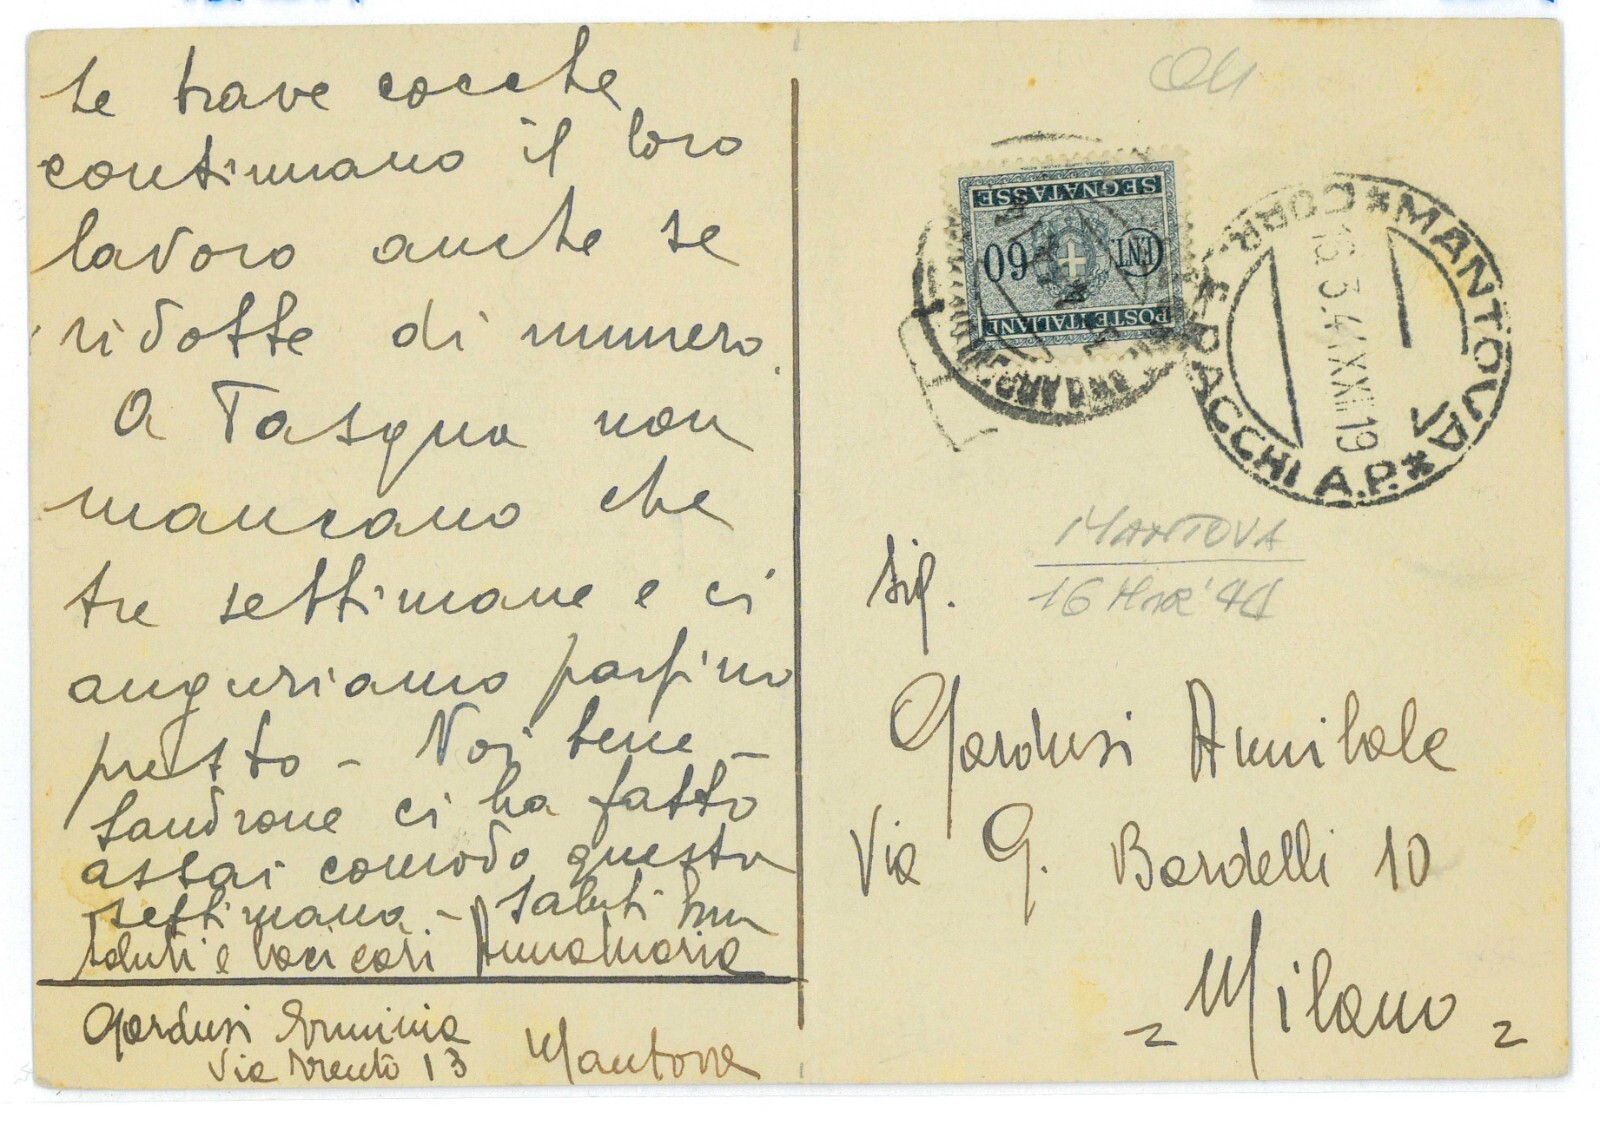 te brave cocche
continuano il loro
lavoro anche se
ridotte di numero.
A Pasqua non
mancano che
tre settimane e ci
auguriamo perfino
presto - Noi bene -
Sandrone ci ha fatto
assai comodo questa
settimana - Saluti
Saluti e baci cari Annamaria
Gardusi Erminia
Via Trento 13 Mantova
POSTE ITALIANE
CENT.
60
SEGNATASSE
MANTOVA
CORR. E PACCHI A.P.
16.3.4 XXII.19
MANTOVA
16 Mar '44
Sig.
Gardusi Annibale
Via G. Bardelli 10
- Milano -